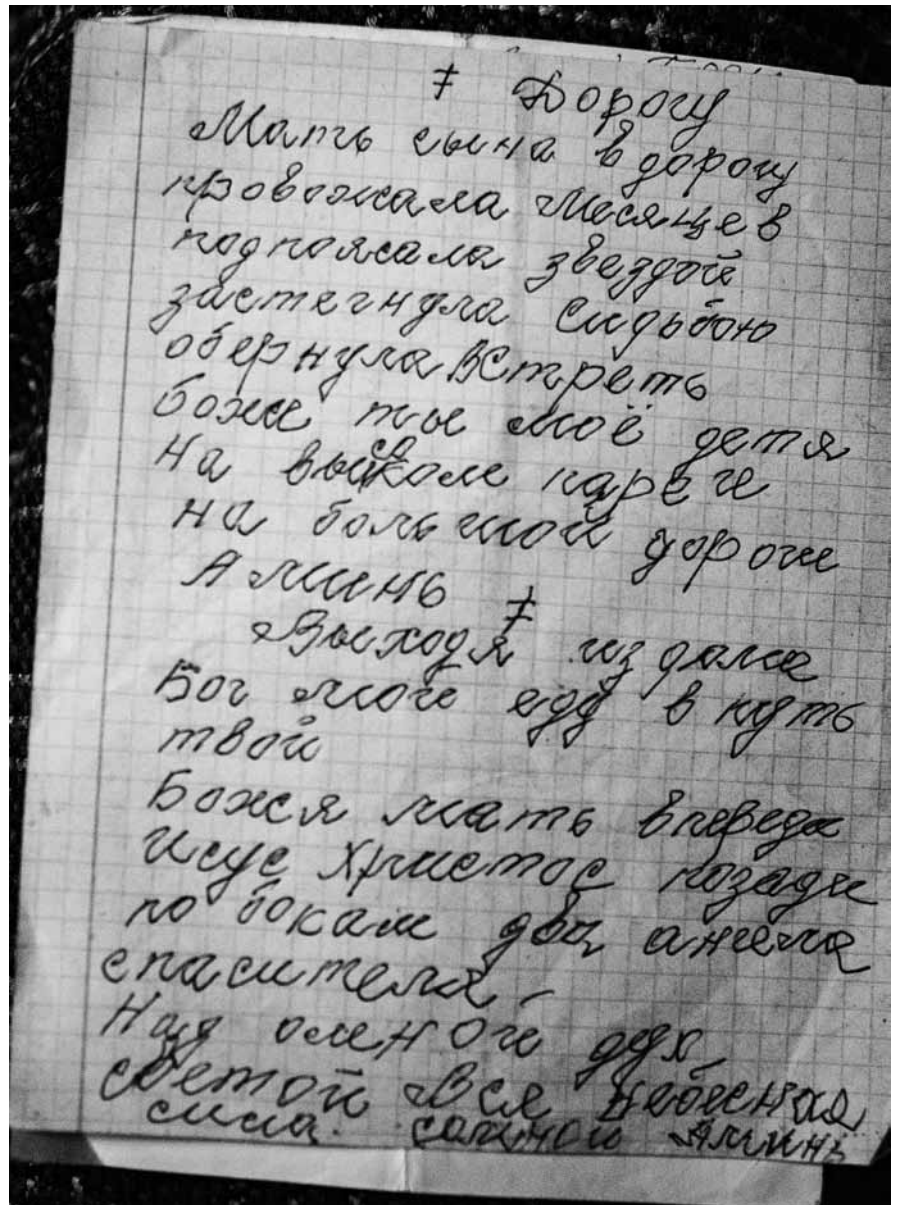 ‡ Дорогу
Мать сына в дорогу
провожала Месяцев
подпоясала звездой
застегнула Судьбою
обернула Встреть
боже ты моё детя
На высоком
на большой дороги
Аминь ‡
Выходя из дома
Бог мой еду в путь
твой
Божся мать впереди
Исус Христос позади
по бокам два анела
спасителя
Над оменой дух
светой Вся небесная
сила. сомной Аминь